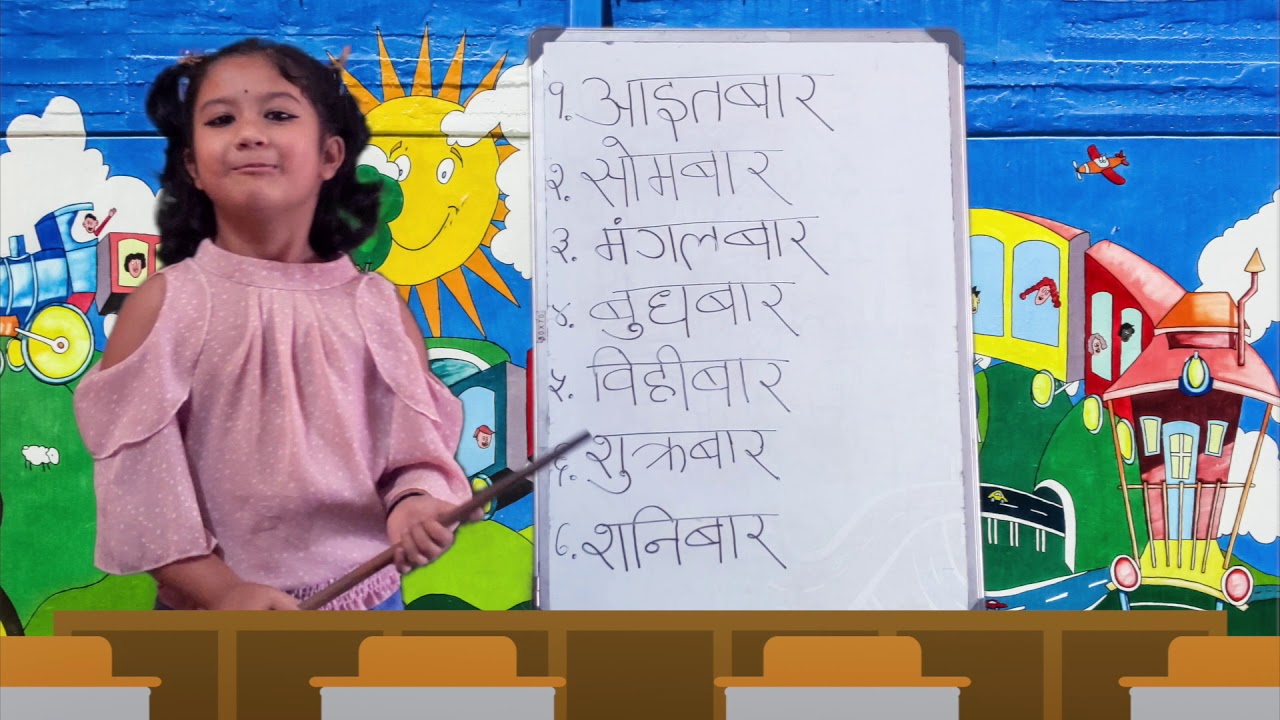 १. आइतबार
२. सोमबार
३. मंगलबार
४. बुधबार
५. विहीबार
६. शुक्रबार
७. शनिबार